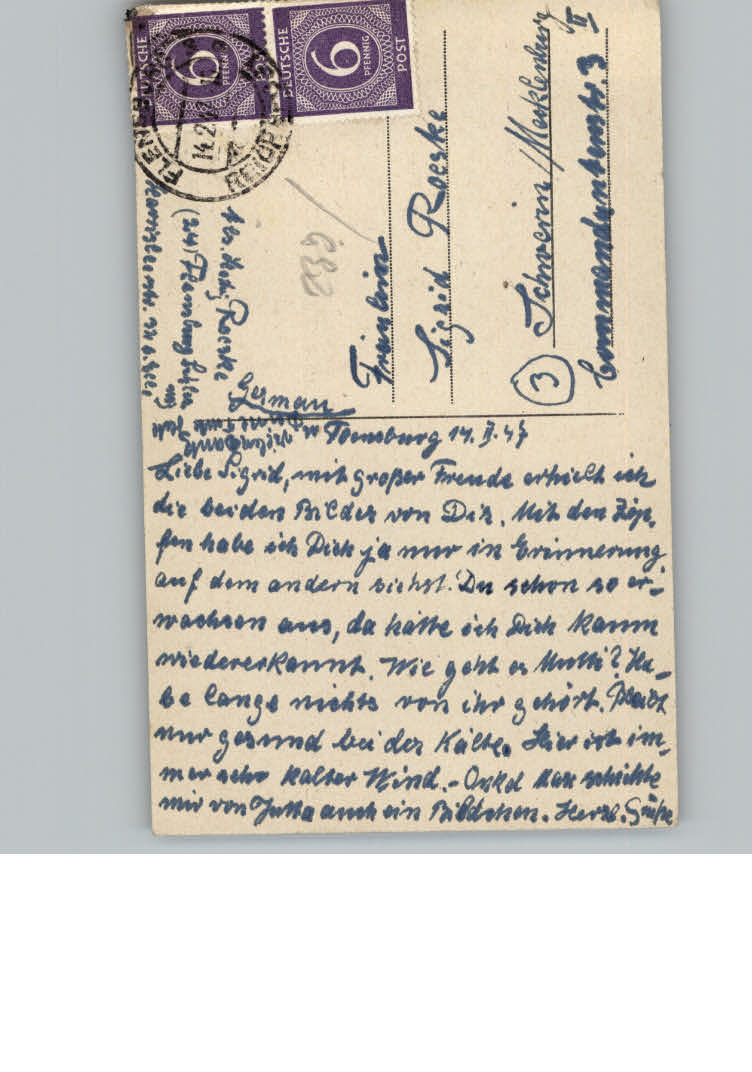 DEUTSCHE POST
6
PFENNIG
DEUTSCHE POST
6
PFENNIG
14.2.47
Fräulein
Sigrid Roeske
3 Schwerin/Mecklenburg
Commandantenstr. 3 II
Abs. Roeske
(24) Flensburg
German
Flensburg 14. II. 47
Liebe Sigrid, mit großer Freude erhielt ich
die beiden Bilder von Dir. Mit den Zöp-
fen habe ich Dich ja nur in Erinnerung
auf dem andern siehst Du schon so er-
wachsen aus, da hätte ich Dich kaum
wiedererkannt. Wie geht es Mutti? Ha-
be lange nichts von ihr gehört. Bleibt
nur gesund bei der Kälte. Hier ist im-
mer sehr kalter Wind.- Onkel schickte
mir von Jutta auch ein Bildchen. Herzl. Grüße